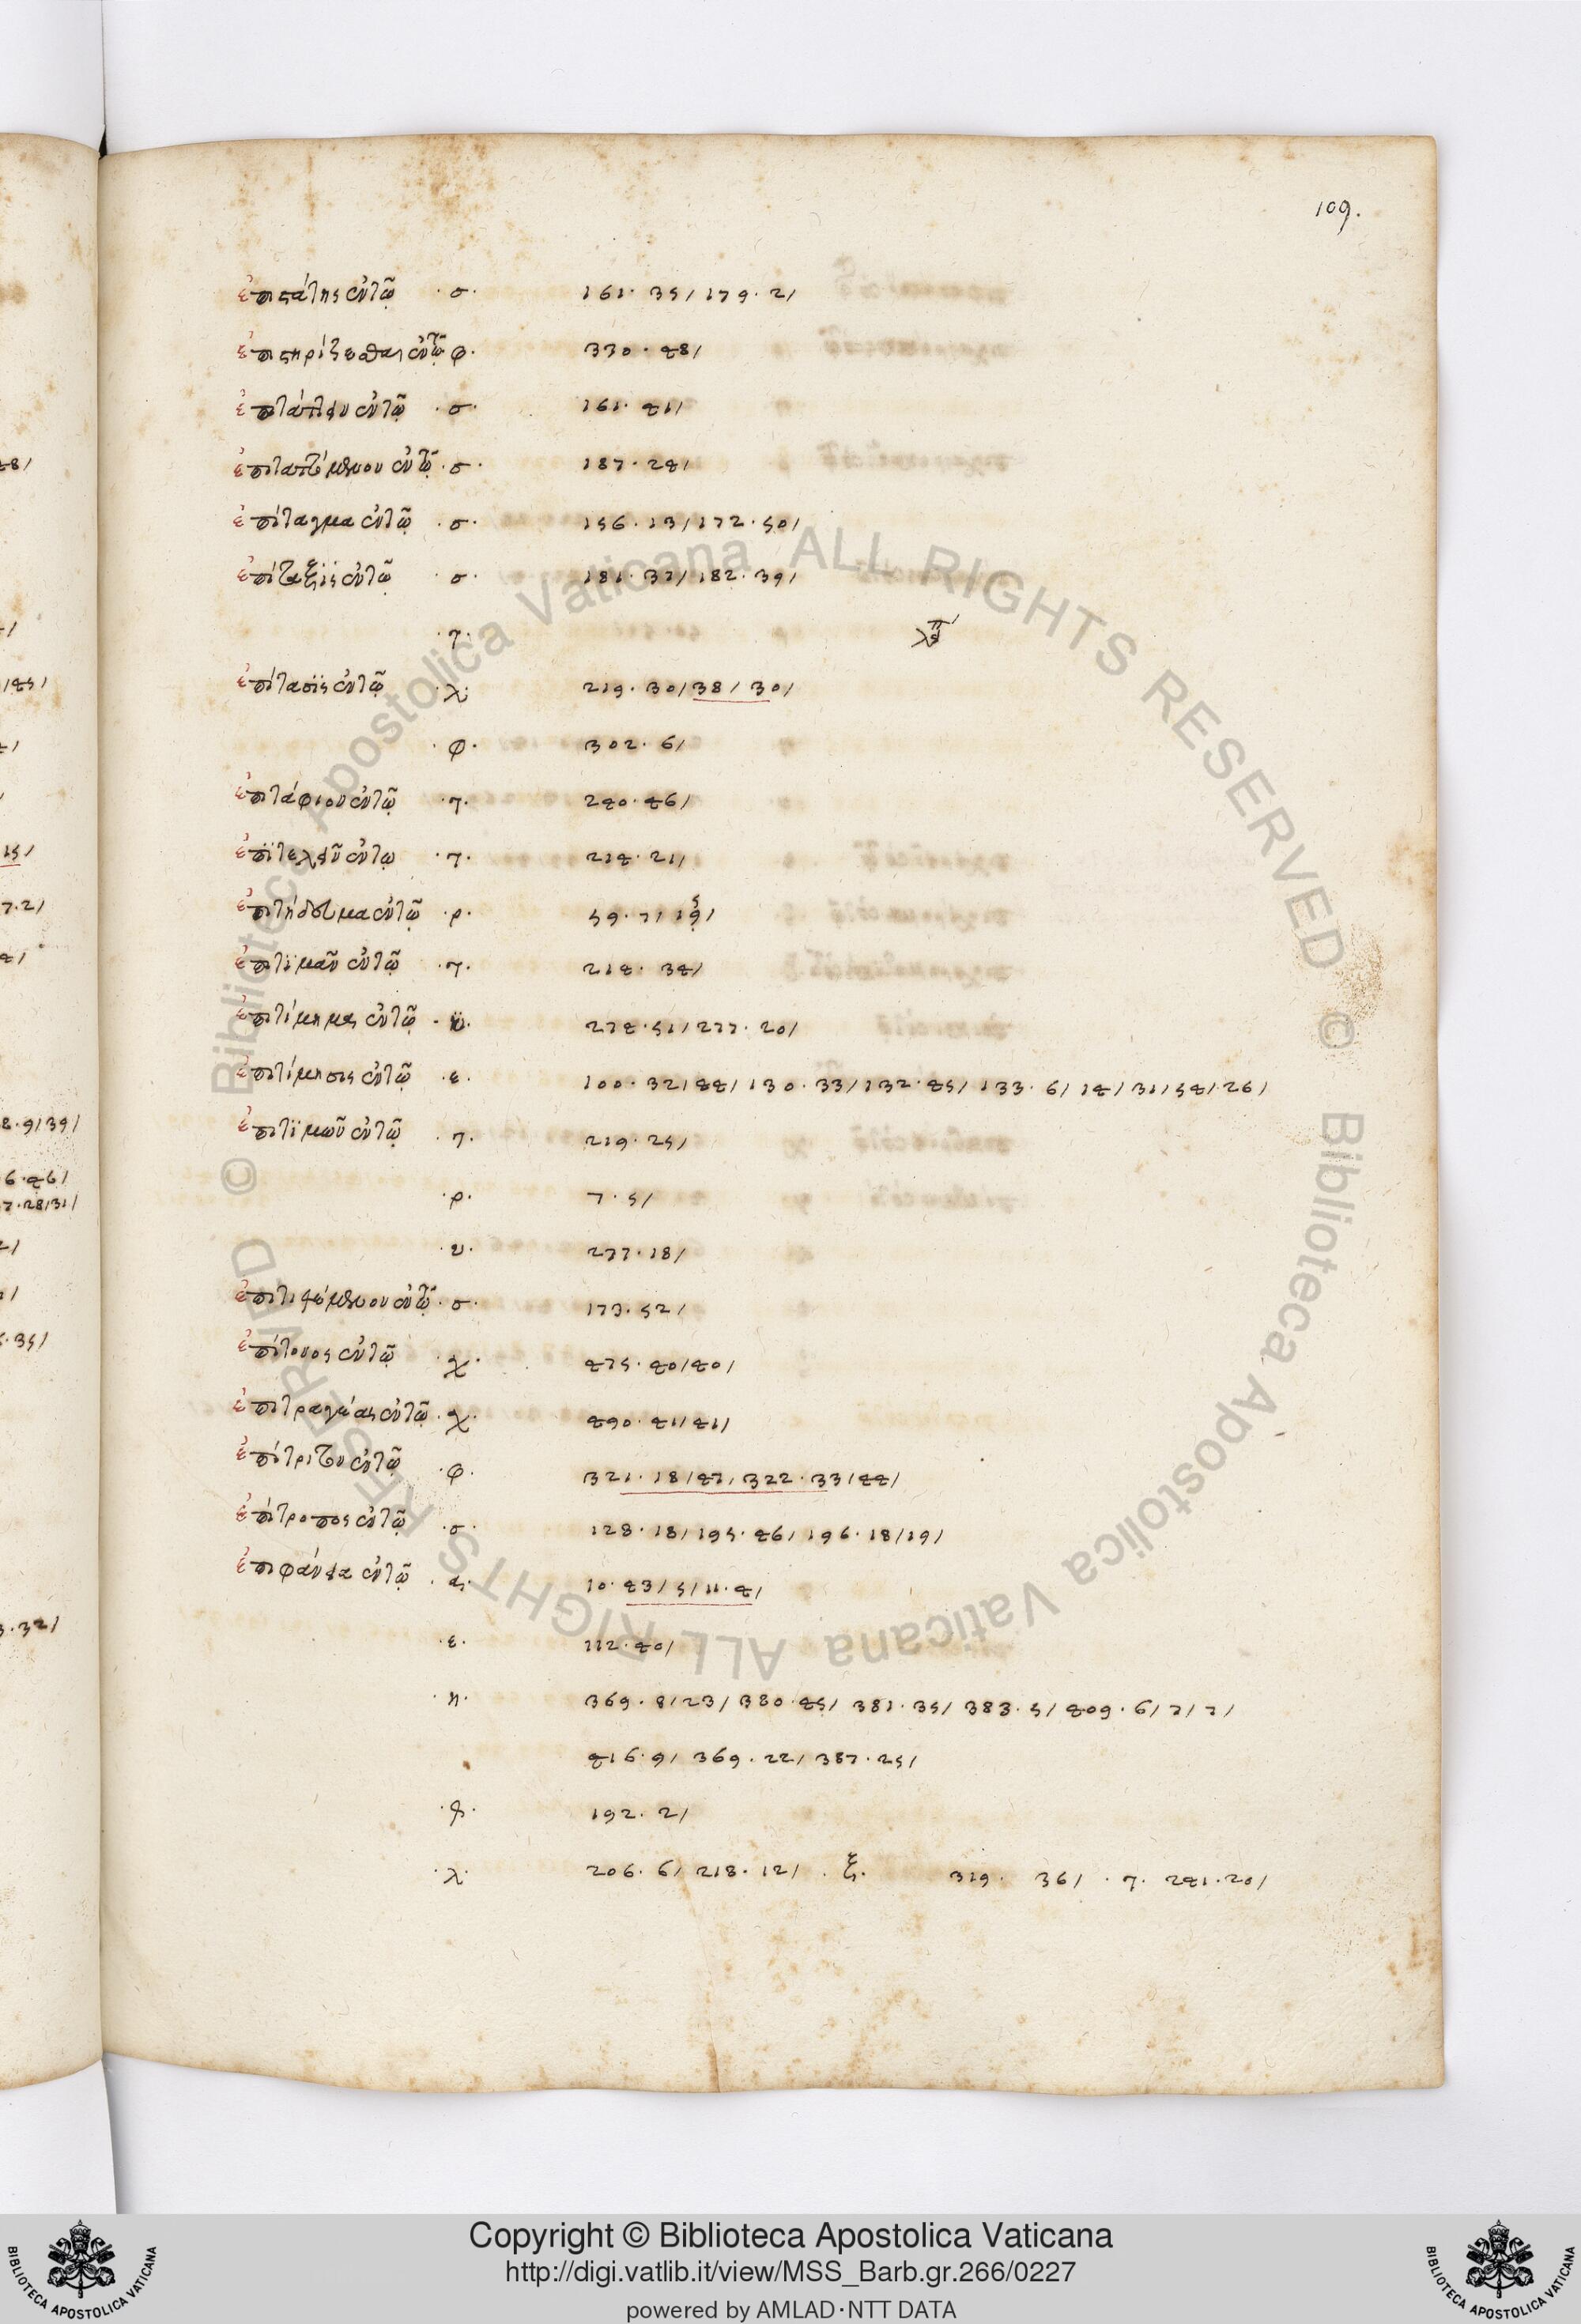 109.
ἐπιστάτης ἐν τῷ · σ · 161 · 35 / 179 · 2 /
ἐπιστηρίζεσθαι ἐν τῷ φ · 330 · 48 /
· σ · 161 · 41 /
· σ · 187 · 24 /
ἐπίταγμα ἐν τῷ · σ · 156 · 13 / 172 · 50 /
ἐπίταξϊς ἐν τῷ · σ · 181 · 37 / 182 · 39 /
· τ ·
ἐπίτασϊς ἐν τῷ · λ · 219 · 30 / 38 / 30 /
· φ · 302 · 6 /
ἐπιτάφιον ἐν τῷ · τ · 240 · 46 /
ἐπϊτελεῖν ἐν τῳ · τ · 214 · 21 /
ἐπιτήδευμα ἐν τῷ · ρ · 59 · 7 / 19 /
ἐπιτϊμᾶν ἐν τῷ · τ · 214 · 34 /
ἐπιτίμημα ἐν τῷ · υ · 274 · 51 / 277 · 20 /
ἐπιτίμησις ἐν τῷ · ε · 100 · 32 / 44 / 130 · 33 / 132 · 45 / 133 · 6 / 14 / 31 / 54 / · 26 /
ἐπιτϊμῶν ἐν τῷ · τ · 219 · 25 /
· ρ · 7 · 5 /
· υ · 277 · 18 /
· σ · 173 · 52 /
ἐπίτονος ἐν τῷ · χ · 475 · 40 / 40 /
ἐπιτραγίας ἐν τῷ · χ · 490 · 41 / 41 /
ἐπίτριτον ἐν τῷ · φ · 321 · 18 / 47 / 322 · 33 / 44 /
ἐπίτροπος ἐν τῷ · σ · 128 · 18 / 195 · 46 / 196 · 18 / 19 /
ἐπιφάνεια ἐν τῷ · α · 10 · 43 / 5 / 11 · 4 /
· ε · 112 · 40 /
· η · 369 · 8 / 23 / 380 · 45 / 381 · 35 / 383 · 5 / 409 · 6 / 7 / 7 /
416 · 9 / 369 · 22 / 387 · 25 /
192 · 2 /
· λ · 206 · 6 / 218 · 12 / · ξ · 319 · 36 / · τ · 241 · 20 /
© Biblioteca Apostolica Vaticana ALL RIGHTS RESERVED © Biblioteca Apostolica Vaticana ALL RIGHTS RESERVED
Copyright © Biblioteca Apostolica Vaticana
http://digi.vatlib.it/view/MSS_Barb.gr.266/0227
powered by AMLAD·NTT DATA
BIBLIOTECA APOSTOLICA VATICANA
BIBLIOTECA APOSTOLICA VATICANA